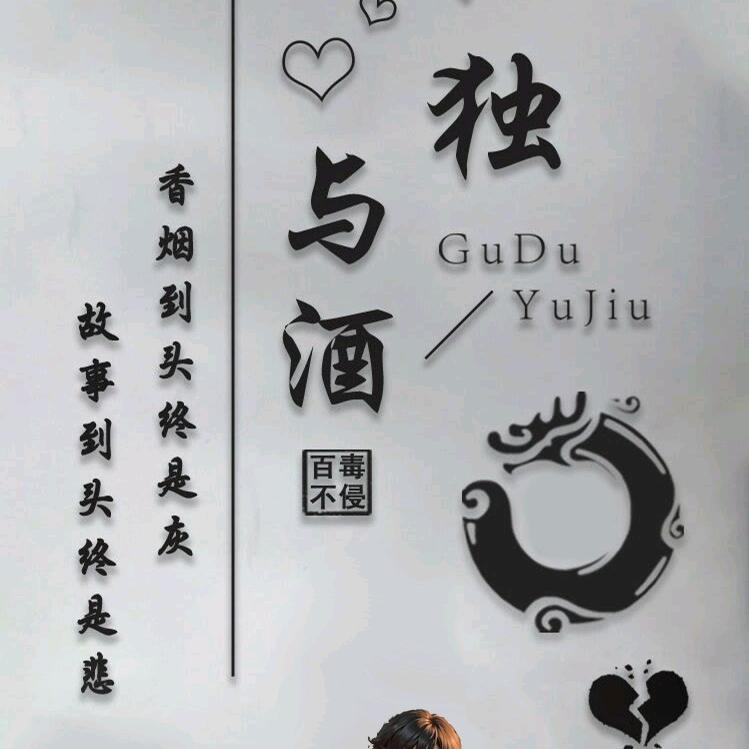 独
与酒
GuDu
YuJiu
百毒
不侵
香烟到头终是灰
故事到头终是悲